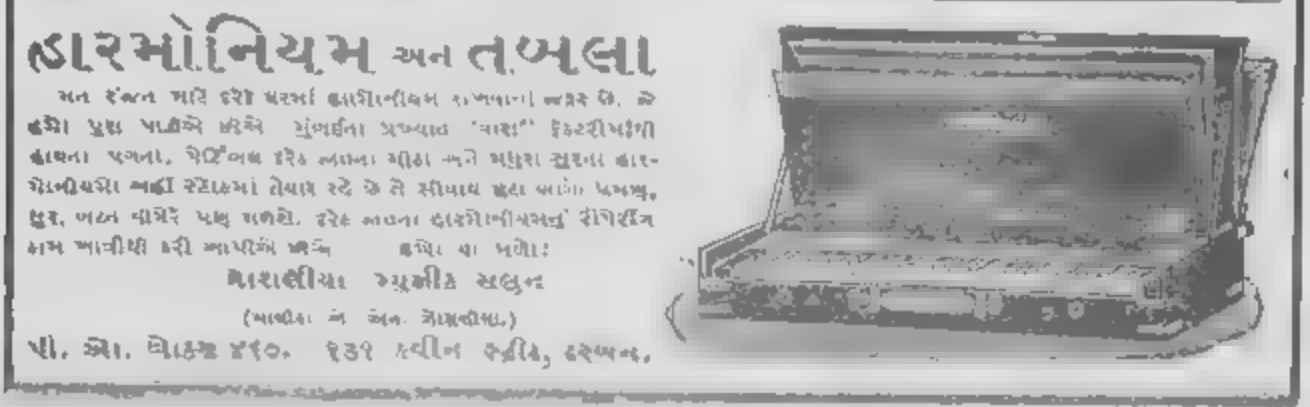 હારમોનિયમ અને તબલા
મન રંજન માટે દરેક ઘરમાં હારમોનીયમ રાખવાની જરૂર છે. જે
હમો પુરા પાડીએ છીએ મુંબઈના પ્રખ્યાત ફેક્ટરીમાંથી
હાથના પગના, દરેક જાતના મીઠા અને મધુરા સુરના હાર-
મોનીયમો અહીં સ્ટોકમાં તૈયાર રહે છે તે સીવાય છુટા ભાગ ધમણ,
સુર, બટન વીગેરે પણ મળશે. દરેક જાતના હારમોનીયમનું રીપેરીંગ
કામ ખાત્રીથી કરી આપીએ છીએ લખો યા મળો:
મ્યુઝીક સલુન
પી. ઓ. બોક્ષ ૪૯૦. ૧૩૧ ક્વીન સ્ટ્રીટ, ડરબન.